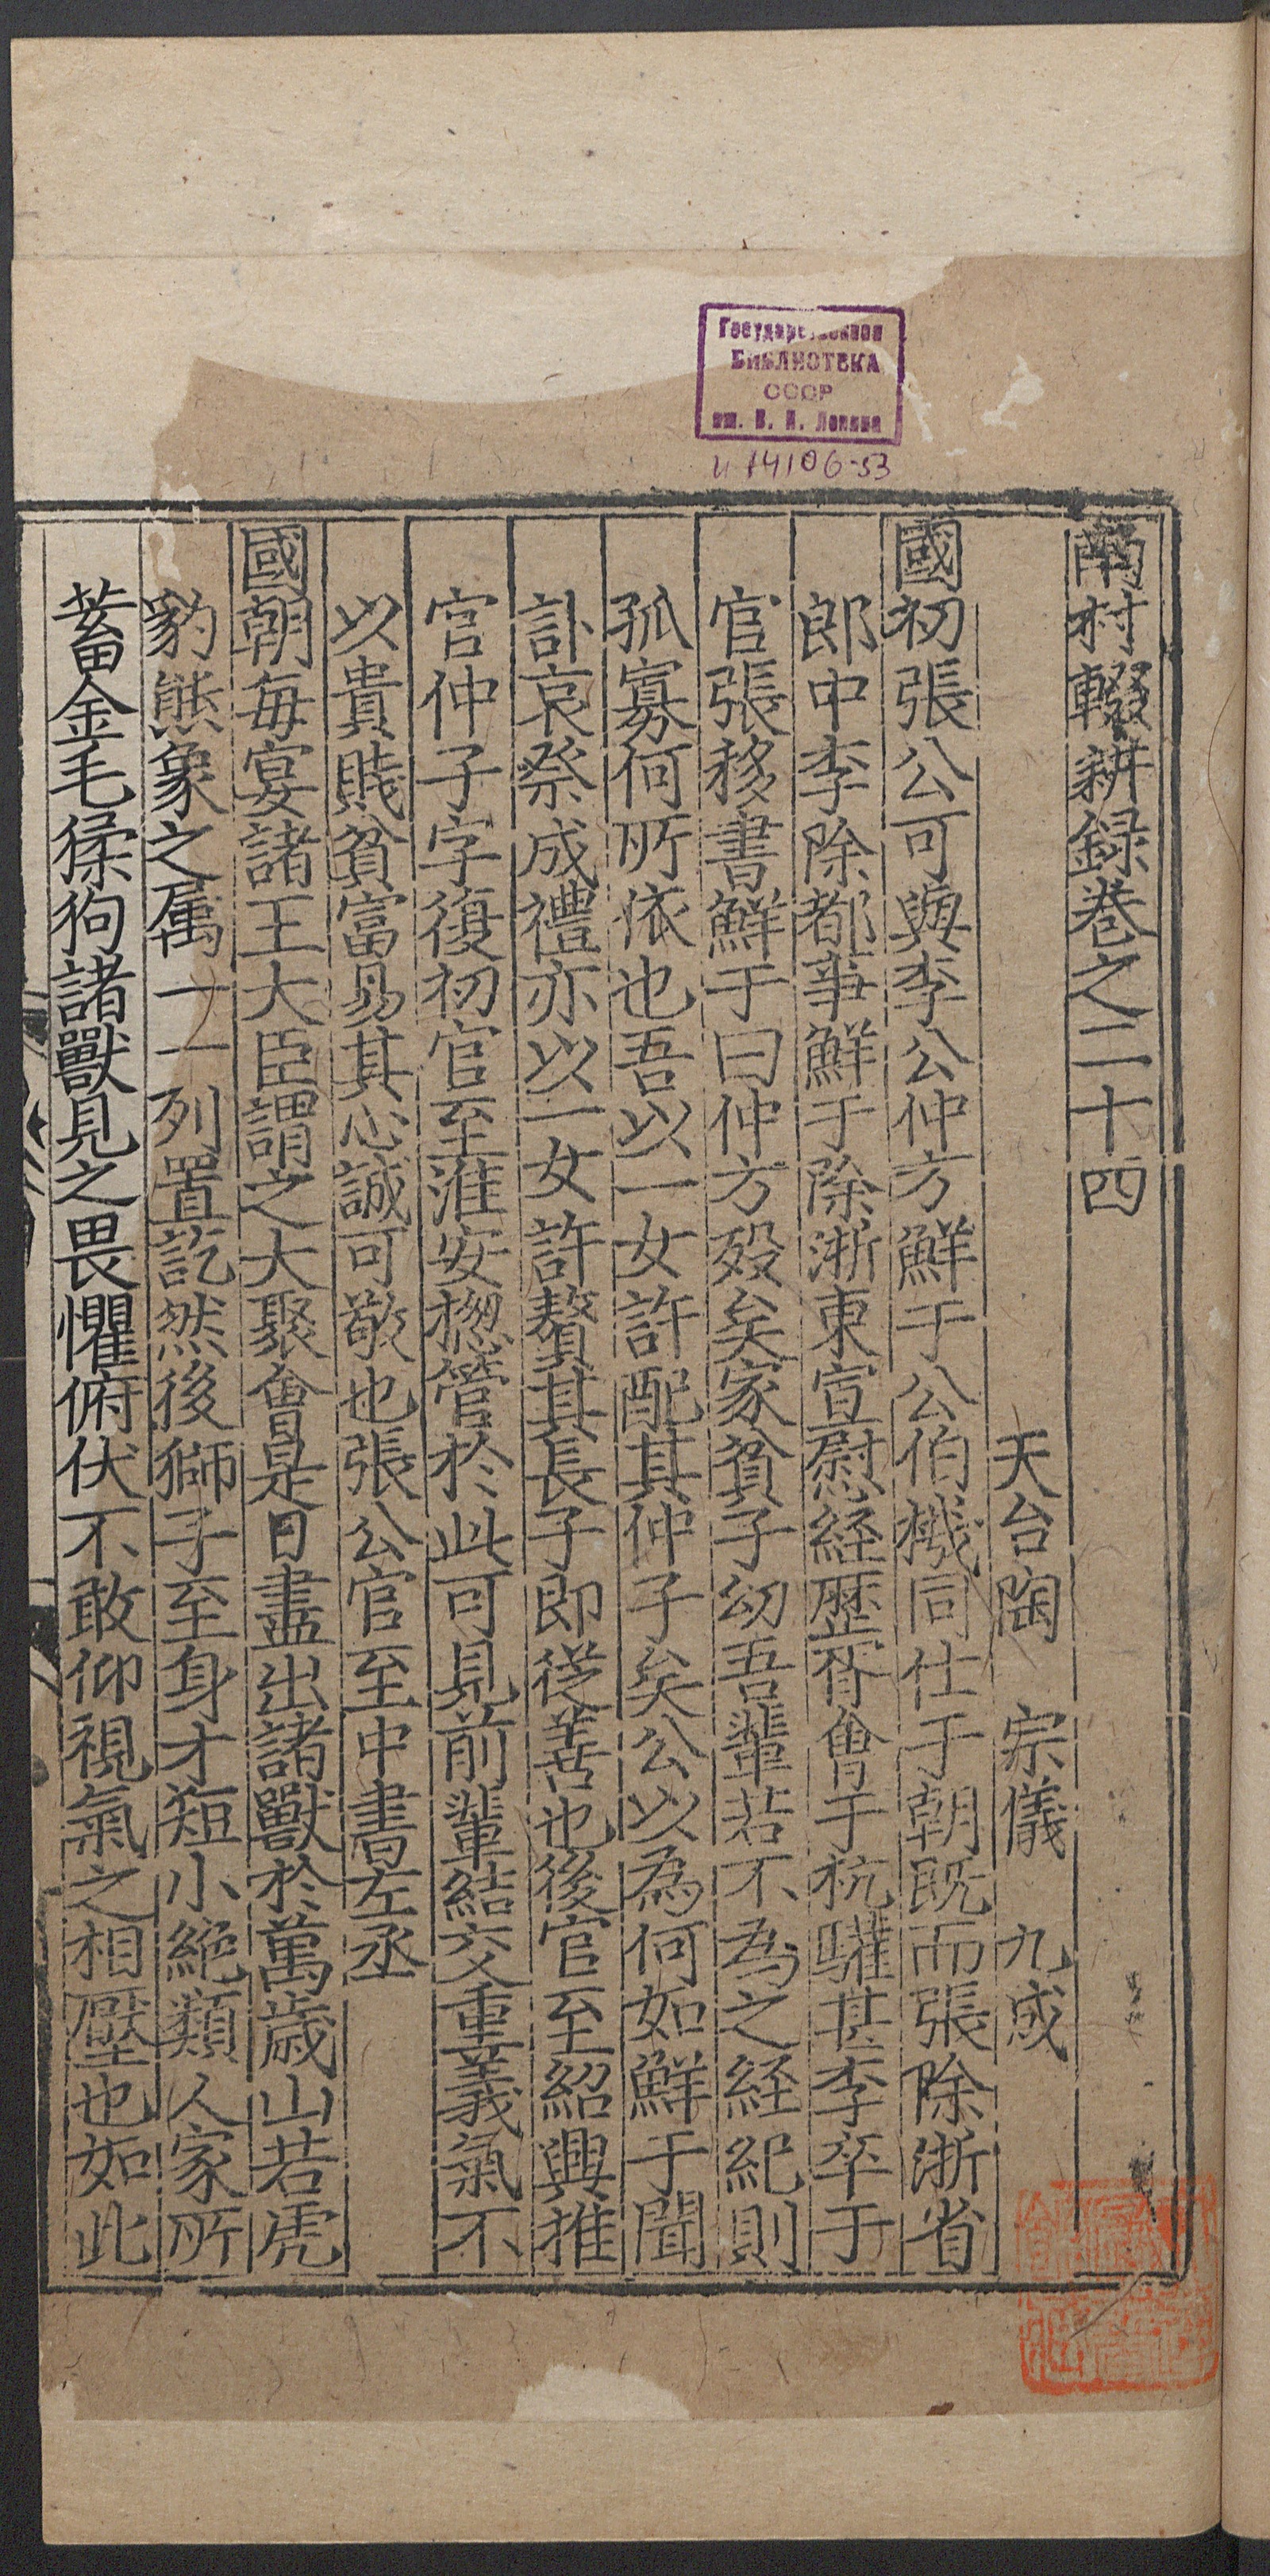 Государственная
БИБЛИОТЕКА
СССР
им. В. И. Ленина
и 14106-53
南村輟耕録卷之二十四
天台陶 宗儀 九成
國初張公可與李公仲方鮮于公伯機同仕于朝既而張除浙省
郎中李除都事鮮于除浙東宣慰経歴胥會于杭驩甚李卒于
官張移書鮮于曰仲方殁矣家貧子幼吾輩若不為之経紀則
孤寡何所依也吾以一女許配其仲子矣公以為何如鮮于聞
訃哀祭成禮亦以一女許贅其長子即從善也後官至紹興推
官仲子字復初官至淮安揔管於此可見前輩結交重義氣不
以貴賤貧富易其心誠可敬也張公官至中書左丞
國朝毎宴諸王大臣謂之大聚會是日盡出諸獸於萬歳山若虎
豹熊象之属一一列置訖然後獅子至身才短小絶類人家所
蓄金毛猱狗諸獸見之畏懼俯伏不敢仰視氣之相壓也如此